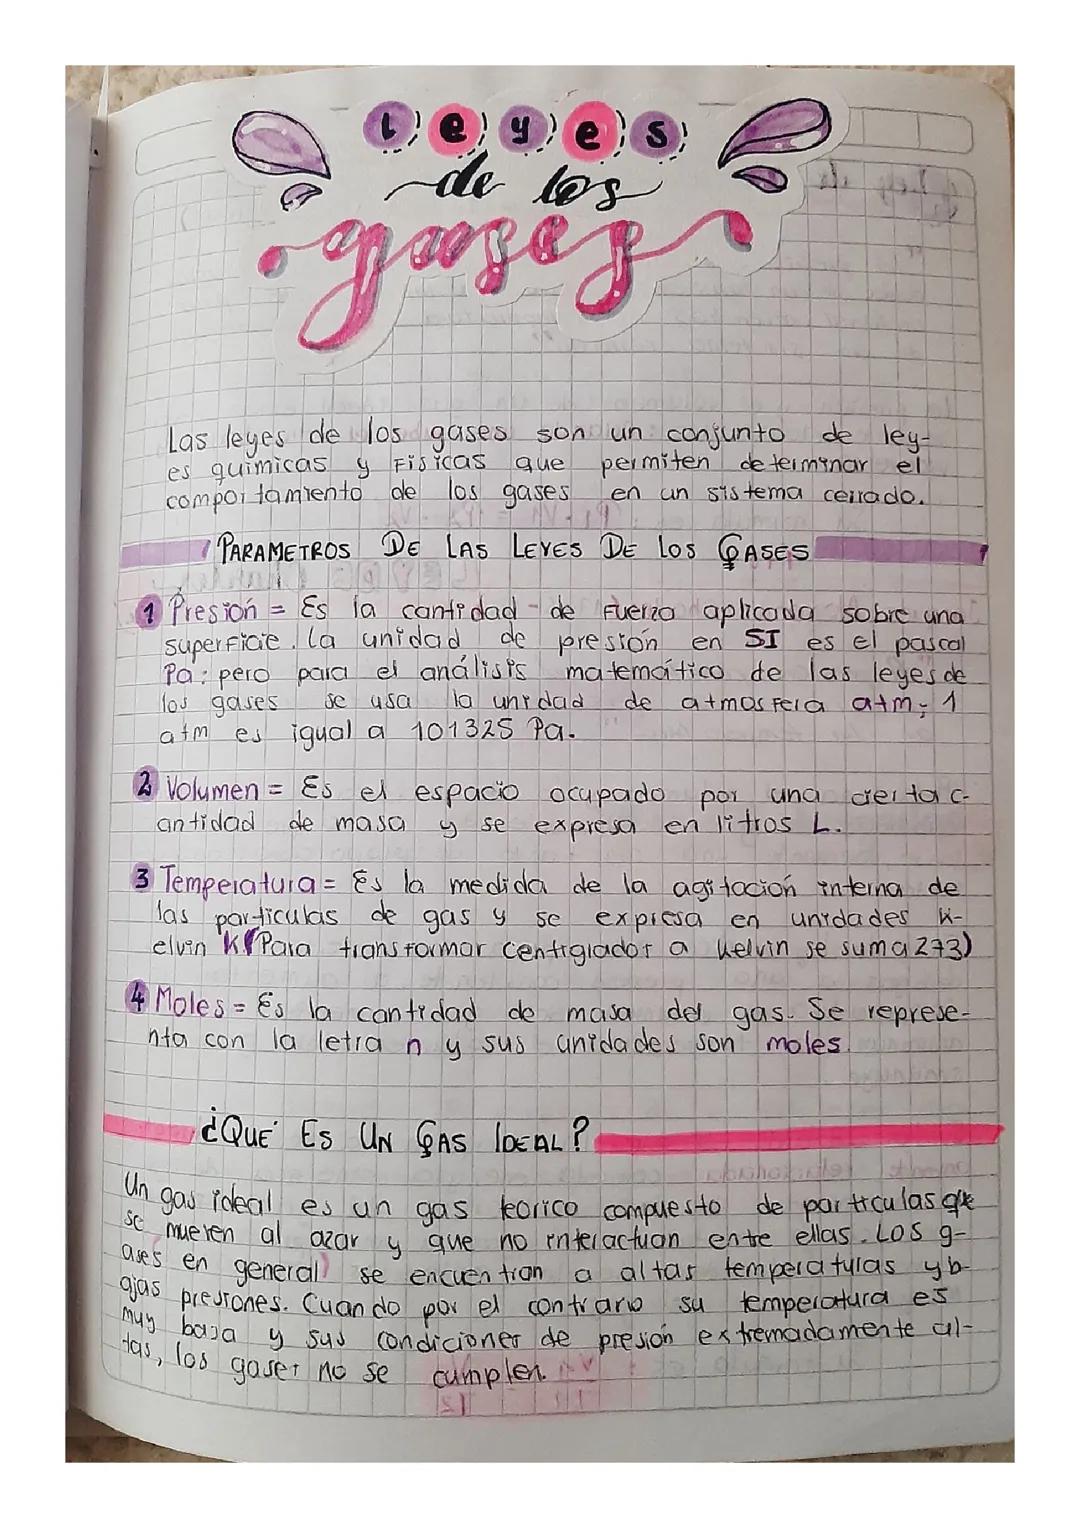 Leyes
de los
gases
Las leyes de los gases son un conjunto de ley-
es quimicas y Fisicas que permiten determinar el
comportamiento de los gases en un sistema cerrado.
PARAMETROS DE LAS LEYES DE LOS GASES
1 Presión = Es la cantidad de Fuerza aplicada sobre una
superficie. La unidad de presión en SI es el pascal
Pa; pero para el análisis matemático de las leyes de
los gases se usa la unidad de atmosfera atm; 1
atm es igual a 101325 Pa.
2 Volumen = Es el espacio ocupado por una cierta c-
antidad de masa y se expresa en litros L.
3 Temperatura = Es la medida de la agitación interna de
las particulas de gas y se expresa en unidades K-
elvin K (Para transformar centigrados a kelvin se suma 273)
4 Moles = Es la cantidad de masa del gas. Se represe-
nta con la letra n y sus unidades son moles.
¿QUÉ ES UN GAS IDEAL?
Un gas ideal es un gas teorico compuesto de particulas que
se mueven al azar y que no interactuan entre ellas. Los g-
ases en general se encuentran a altas temperaturas y b-
ajas presiones. Cuando por el contrario su temperatura es
muy baja y sus condiciones de presión extremadamente al-
tas, los gases no se cumplen.